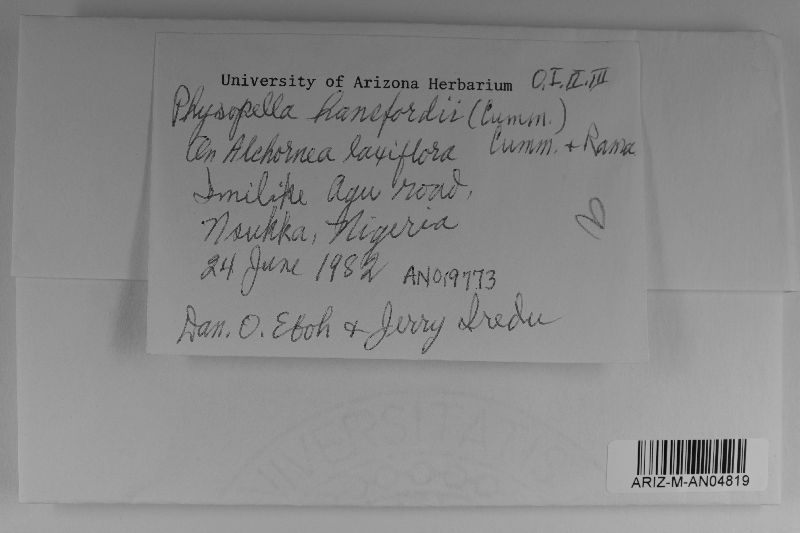 University of Arizona Herbarium O, I, II, III
Physopella hansfordii (Cumm.)
Cumm. & Rama
On Alchornea laxiflora
Imilike Agu road,
Nsukka, Nigeria
24 June 1982 AN019773
Dan. O. Eboh & Jerry Iredu
ARIZ-M-AN04819